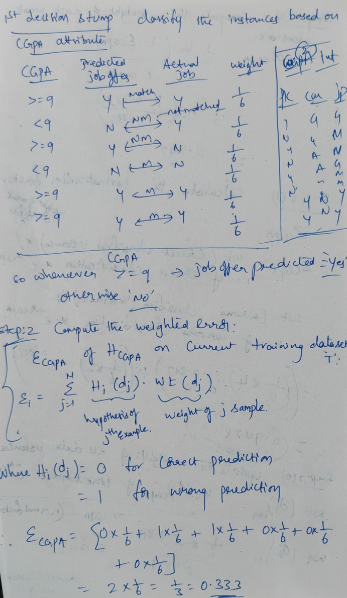 1st decision stump classify the instances based on
CGPA attribute
CGPA Predicted job offer Actual job weight
>=9 Y Match Y 1/6
not matched
<9 N NM Y 1/6
>=9 Y NM N 1/6
<9 N M N 1/6
>=9 Y M Y 1/6
>=9 Y M Y 1/6
Int
PK Com
Y G G
N G M
N A M
Y A G
Y N Y
Y N Y
so whenever CGPA >= 9 → job offer predicted = 'Yes'
otherwise 'NO'
Step:2 Compute the weighted error:
ε CGPA of H CGPA on current training dataset
T:
εi = N Σ j=1 Hi (dj) . wt (dj)
hypothesis of weight of j sample.
jth example.
where Hi (dj) = 0 for correct prediction
= 1 for wrong prediction
∴ ε CGPA = {0 x 1/6 + 1 x 1/6 + 1 x 1/6 + 0 x 1/6 + 0 x 1/6
+ 0 x 1/6]
= 2 x 1/6 = 1/3 = 0.333